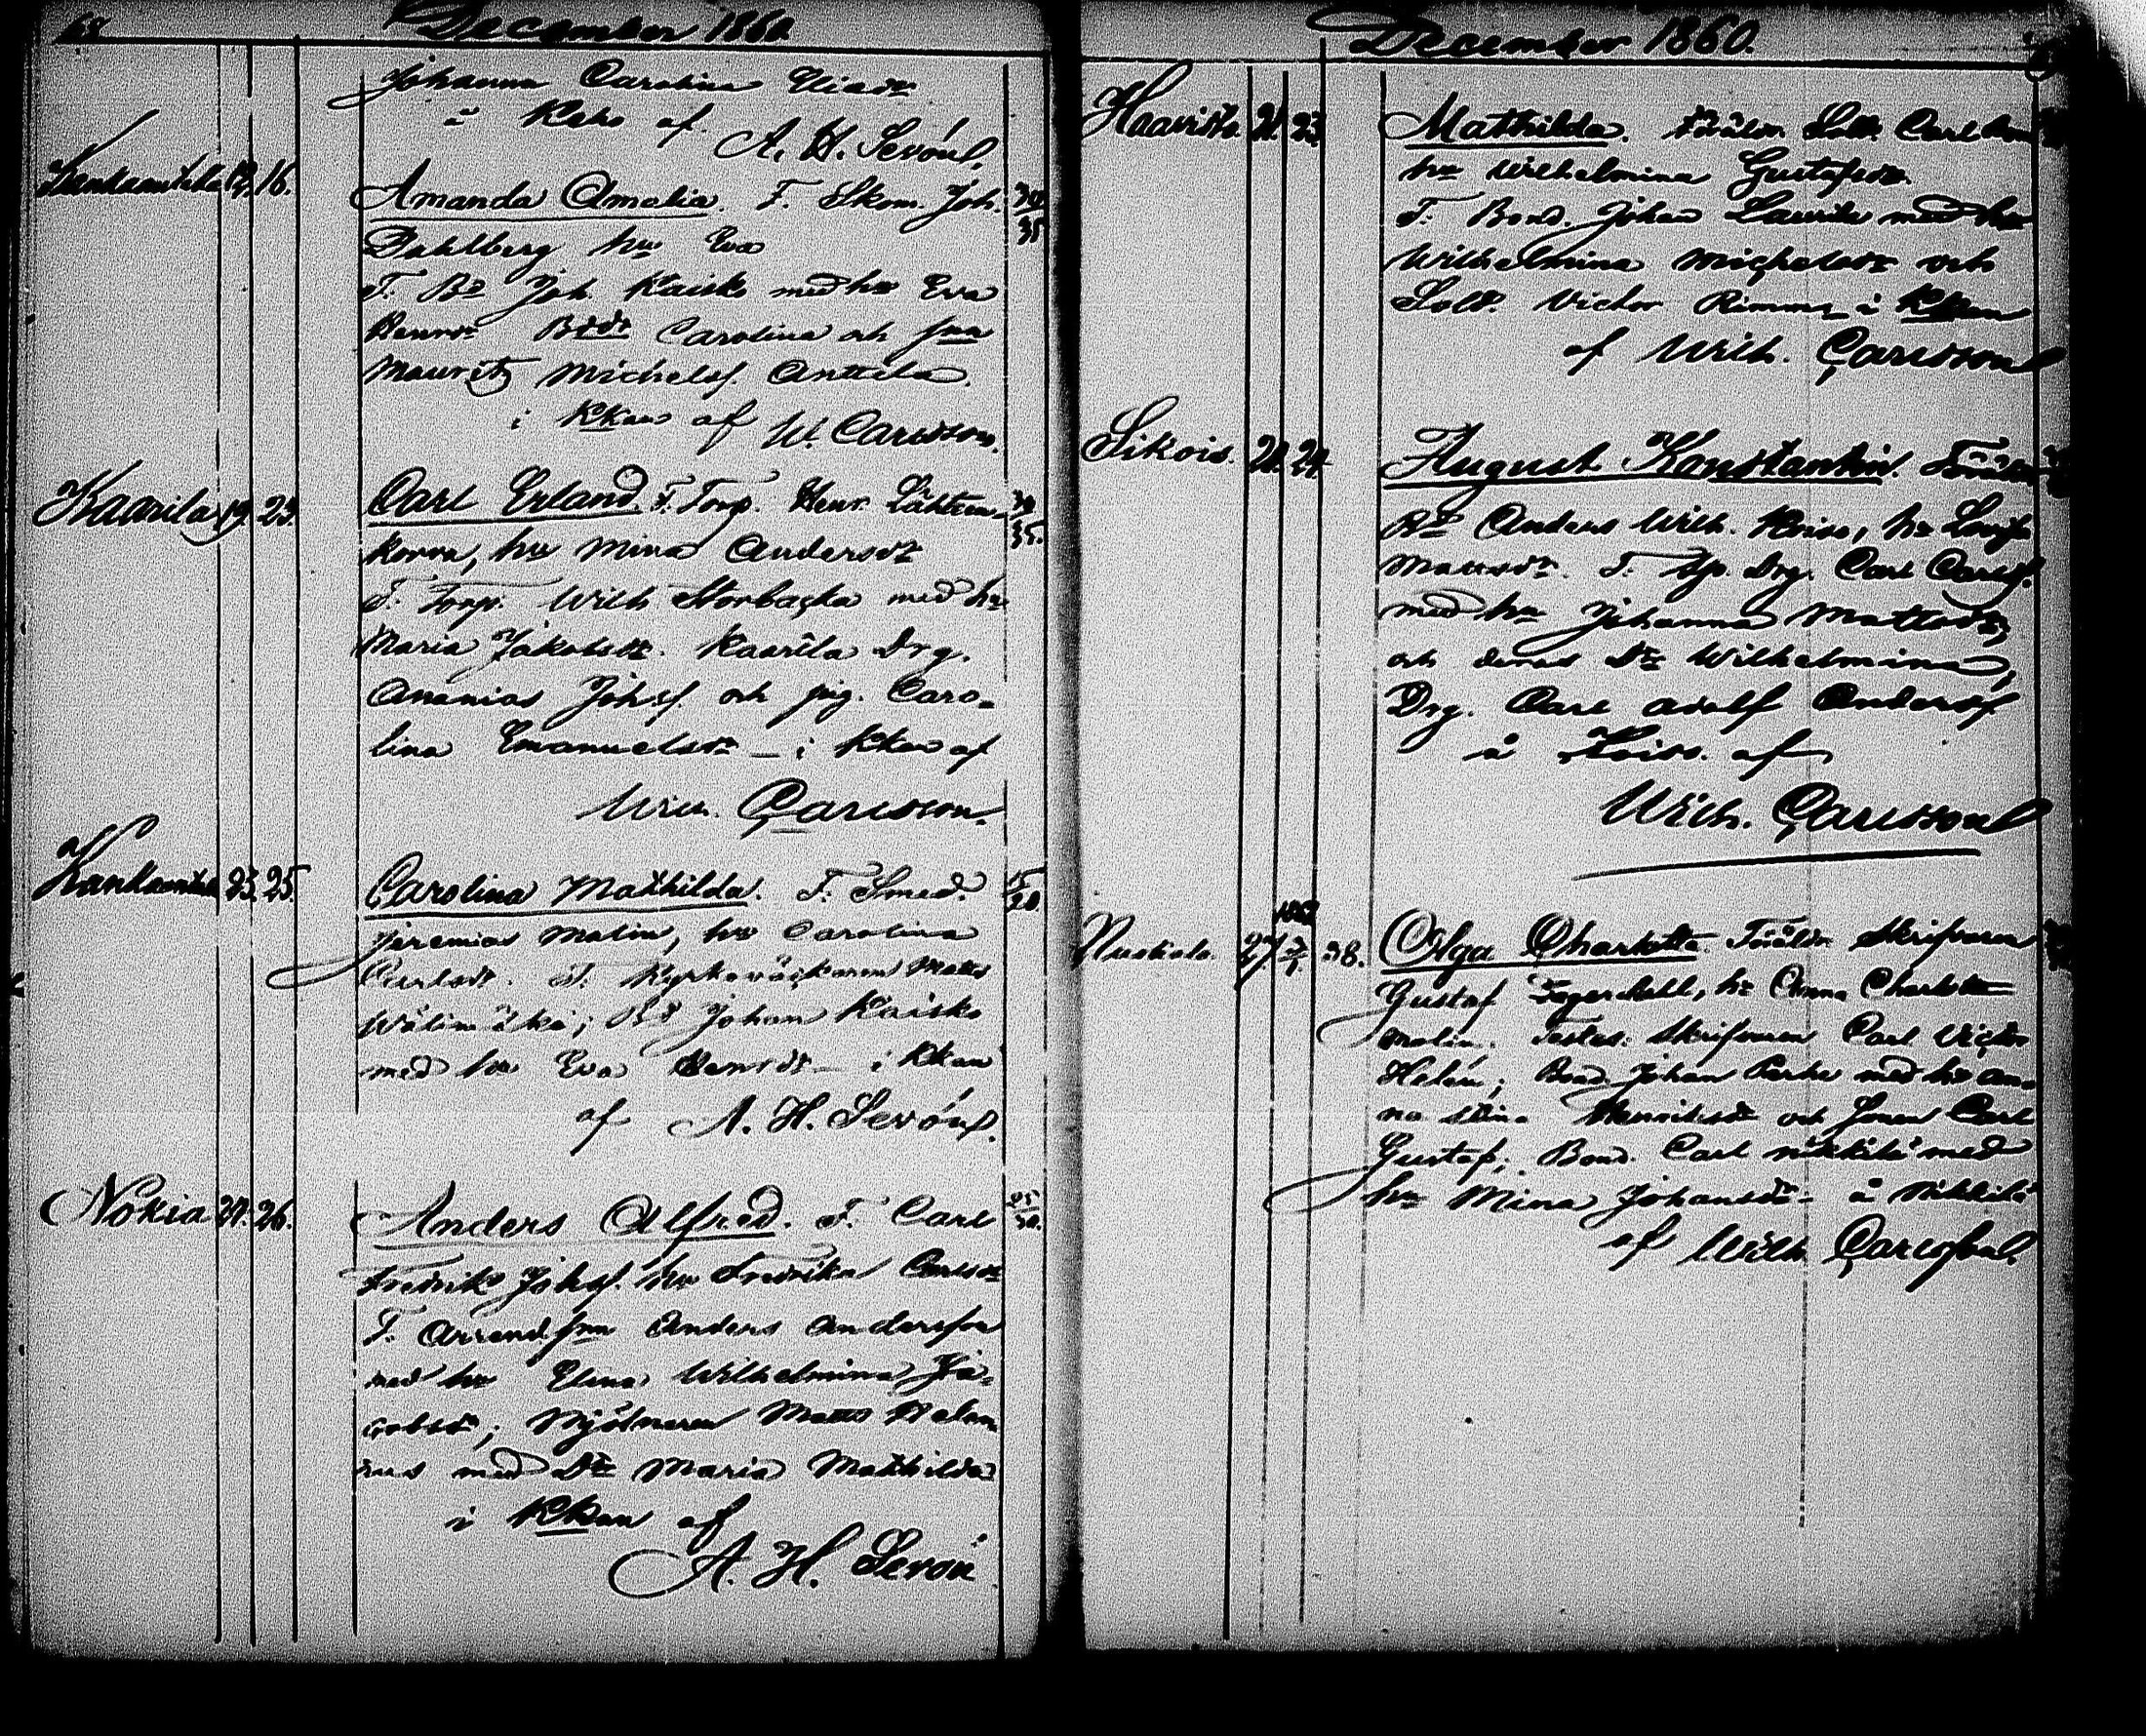 68.
December 1860
Johanna Carolina Eliasdr
å Keho af
A. H. Sevón.
Kankaantaka 12. 16. Amanda Amalia. F. Skom. Joh. 30/35
Dahlberg hu Eva
F. Bd Joh. Kaisko med hu Eva
Henrsdr Bddr Carolina och
Mauritz Michelsf. Anttila
i Kkan af W. Carlsson.
Kaarila 19. 23. Carl Erland. F. Torp. Henr. Lähteen- 30/35.
korva, hu Mina Andersdr
F. Torp. Wilh Storbacka med hu
Maria Jakobsdr. Kaarila Drg.
Ananias Johsf. och pig. Caro-
lina Emanuelsdr – i Kkan af
Wilh. Carlsson.
Kankaantaka 23. 25. Carolina Mathilda. F. Smed. 15/20
Jeremias Malin, hu Carolina
Carlsdr. F. Kyrkoväktaren Matts
Wälimäki; Bd Johan Kaisko
med hu Eva Henrsdr – i Kkan
af A. H. Sevón.
Nokia 20. 26. Anders Alfred. F. Carl 25/30.
Fredrik Johsf. hu Fredrika Carlsdr
F. Arrend. Anders Andersson
med hu Elina Wilhelmina Ja-
cobsdr; Mjölnaren Matts Helan
med Dr Maria Mathilda
i Kkan af
A. H. Sevón
December 1860.
Haavisto. 21. 23. Mathilda. Föäldr Sold. Carl
hu Wilhelmina Gustafsdr.
F. Bond. Johan Laurila med hu
Wilhelmina Michelsdr och
Sold. Victor Rimmi i Kkan
af Wilh. Carlsson
Sikois. 21. 24. August Konstantin. Föräldr
Bd Anders Wilh. Koiso, hu Lovisa
Mattsdr. F. Drg. Carl Carlsf.
med hu Johanna Mattsdr
och deras Dr Wilhelmina,
Drg. Carl Adolf Andersf
å Koiso. af
Wilh. Carlsson
1861
27 2/1. 38. Olga Charlotta. Föäldr Skrifvaren
Gustaf Fagerdahl, hu Anna Charlotta
Malin. Testes: Skrifvaren Carl Victor
Helén; Bond. Johan Parka med hu An-
na Stina Henriksdr och Sonen Carl
Gustaf; Bond. Carl Nikkilä med
hu Mina Johansdr – å Nikkilä
af Wilh Carlsson